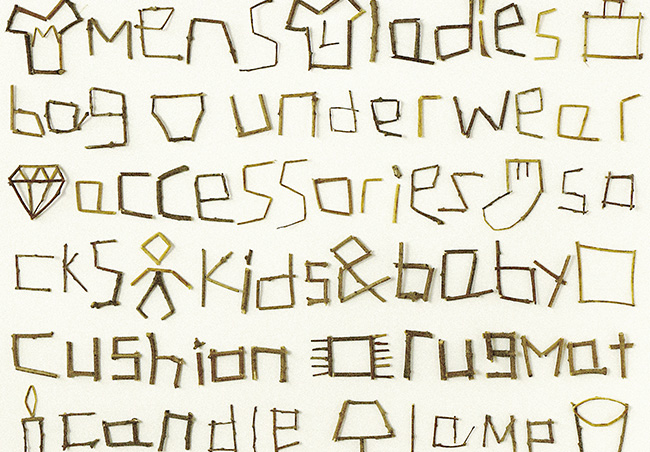 mens ladies
bag underwear
accessories so
cks kids&baby
cushion rugmat
candle lamp